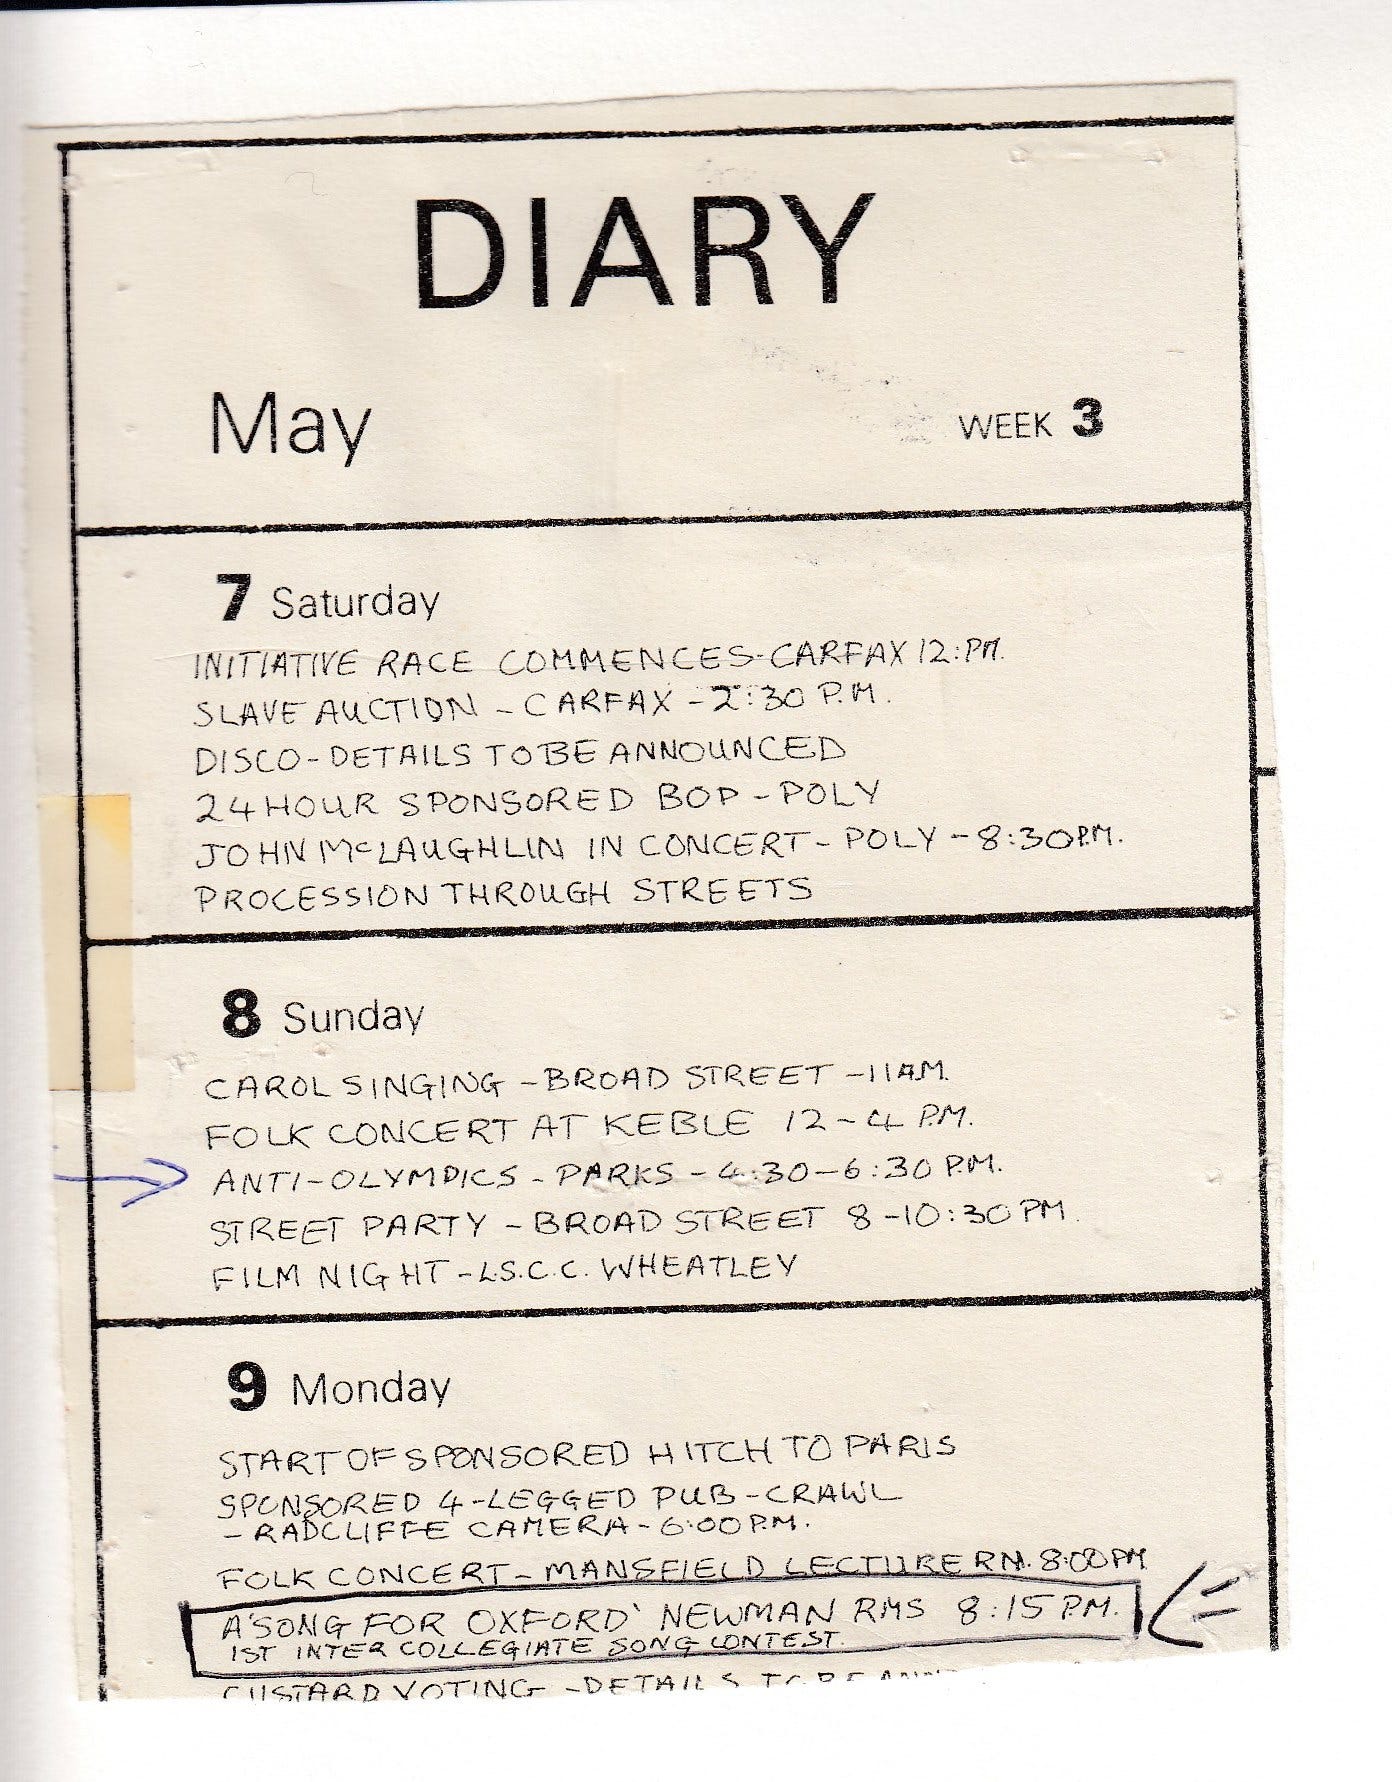 DIARY
May WEEK 3
7 Saturday
INITIATIVE RACE COMMENCES-CARFAX 12:PM.
SLAVE AUCTION - CARFAX - 2:30 P.M.
DISCO-DETAILS TO BE ANNOUNCED
24 HOUR SPONSORED BOP - POLY
JOHN McLAUGHLIN IN CONCERT - POLY - 8:30P.M.
PROCESSION THROUGH STREETS
8 Sunday
CAROL SINGING - BROAD STREET - 11AM.
FOLK CONCERT AT KEBLE 12-4 P.M.
ANTI-OLYMPICS - PARKS - 4:30-6:30 P.M.
STREET PARTY - BROAD STREET 8-10:30 PM.
FILM NIGHT - L.S.C.C. WHEATLEY
9 Monday
START OF SPONSORED HITCH TO PARIS
SPONSORED 4-LEGGED PUB-CRAWL
- RADCLIFFE CAMERA - 6:00 P.M.
FOLK CONCERT - MANSFIELD LECTURE RM. 8:00PM
A'SONG FOR OXFORD' NEWMAN RMS 8:15 P.M.
1ST INTER COLLEGIATE SONG CONTEST.
CUSTARD VOTING - DETAILS TO BE